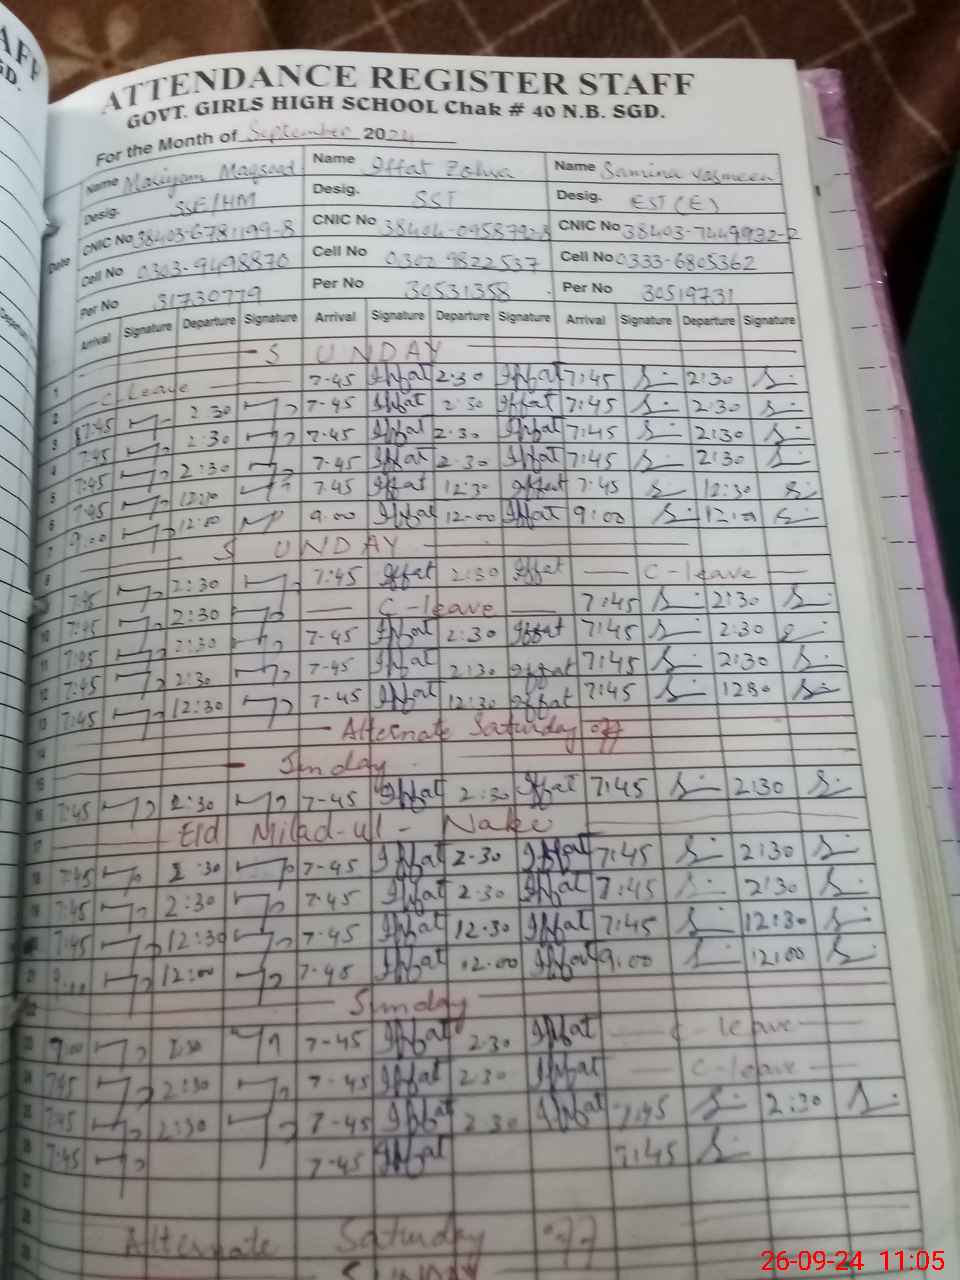 ATTENDANCE REGISTER STAFF
GOVT. GIRLS HIGH SCHOOL Chak # 40 N.B. SGD.
For the Month of September 2024
Name Maqsood Name Iffat Zahra Name Samina Yasmeen
Desig. SSE/HM Desig. SST Desig. EST(E)
Date CNIC No 38403-6781199-8 CNIC No CNIC No 38403-7449932-2
Cell No 0303-9498870 Cell No 0302 9822537 Cell No 0333-6805362
Per No 31730779 Per No 30531358 Per No 30519731
Arrival Signature Departure Signature Arrival Signature Departure Signature Arrival Signature Departure Signature
1 SUNDAY
2 C-leave 7-45 Iffat 2:30 Iffat 7:45 2:30
3 7:45 2:30 7-45 Iffat 2:30 Iffat 7:45 2:30
4 7:45 2:30 7-45 Iffat 2-30 Iffat 7:45 2:30
5 7:45 2:30 7-45 Iffat 2-30 Iffat 7:45 2:30
6 7:45 7.45 Iffat 12:30 Iffat 7-45 12:30
7 9:00 12:00 9.00 Iffat 12-00 Iffat 9:00 12:00
8 SUNDAY
7:45 2:30 7:45 Iffat 2:30 Iffat C-leave
10 7:45 2:30 C-leave 7:45 2:30
11 7:45 2:30 7-45 Iffat 2:30 Iffat 7:45 2:30
12 7:45 2:30 7-45 Iffat 2:30 Iffat 7:45 2:30
13 7:45 12:30 7-45 Iffat 12:30 Iffat 7:45 1230
14 Alternate Saturday off
15 Sunday
16 7:45 2:30 7-45 Iffat 2:30 Iffat 7:45 2:30
17 Eid Milad-ul-Nabi
18 7:45 2:30 7-45 Iffat 2-30 Iffat 7:45 2:30
19 7:45 2:30 7-45 Iffat 2-30 Iffat 7:45 2:30
7:45 12:30 7-45 Iffat 12-30 Iffat 7:45 12:30
21 9:00 12:00 7-45 Iffat 12-00 Iffat 9:00 12:00
22 Sunday
23 9:00 7-45 Iffat 2-30 Iffat C-leave
24 7:45 2:30 7-45 Iffat 2-30 Iffat C-leave
25 7:45 2:30 7-45 Iffat 2-30 Iffat 7:45 2:30
26 7:45 7-45 Iffat 7:45
27
28 Alternate Saturday off
29 SUNDAY
26-09-24 11:05